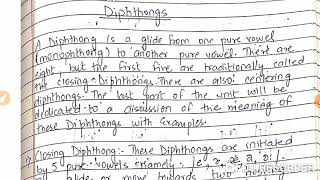 Diphthongs
A Diphthong is a glide from one pure vowel
(monophthong) to another pure vowel. There are
eight but the first five are traditionally called
the closing-Diphthoing. There are also centering
diphthongs. The last part of the unit will be
dedicated to a discussion of the meaning of
these Diphthongs with Examples.
Closing Diphthong:- These Diphthongs are initiated
by 5 pure vowels namely
glide or move towards two